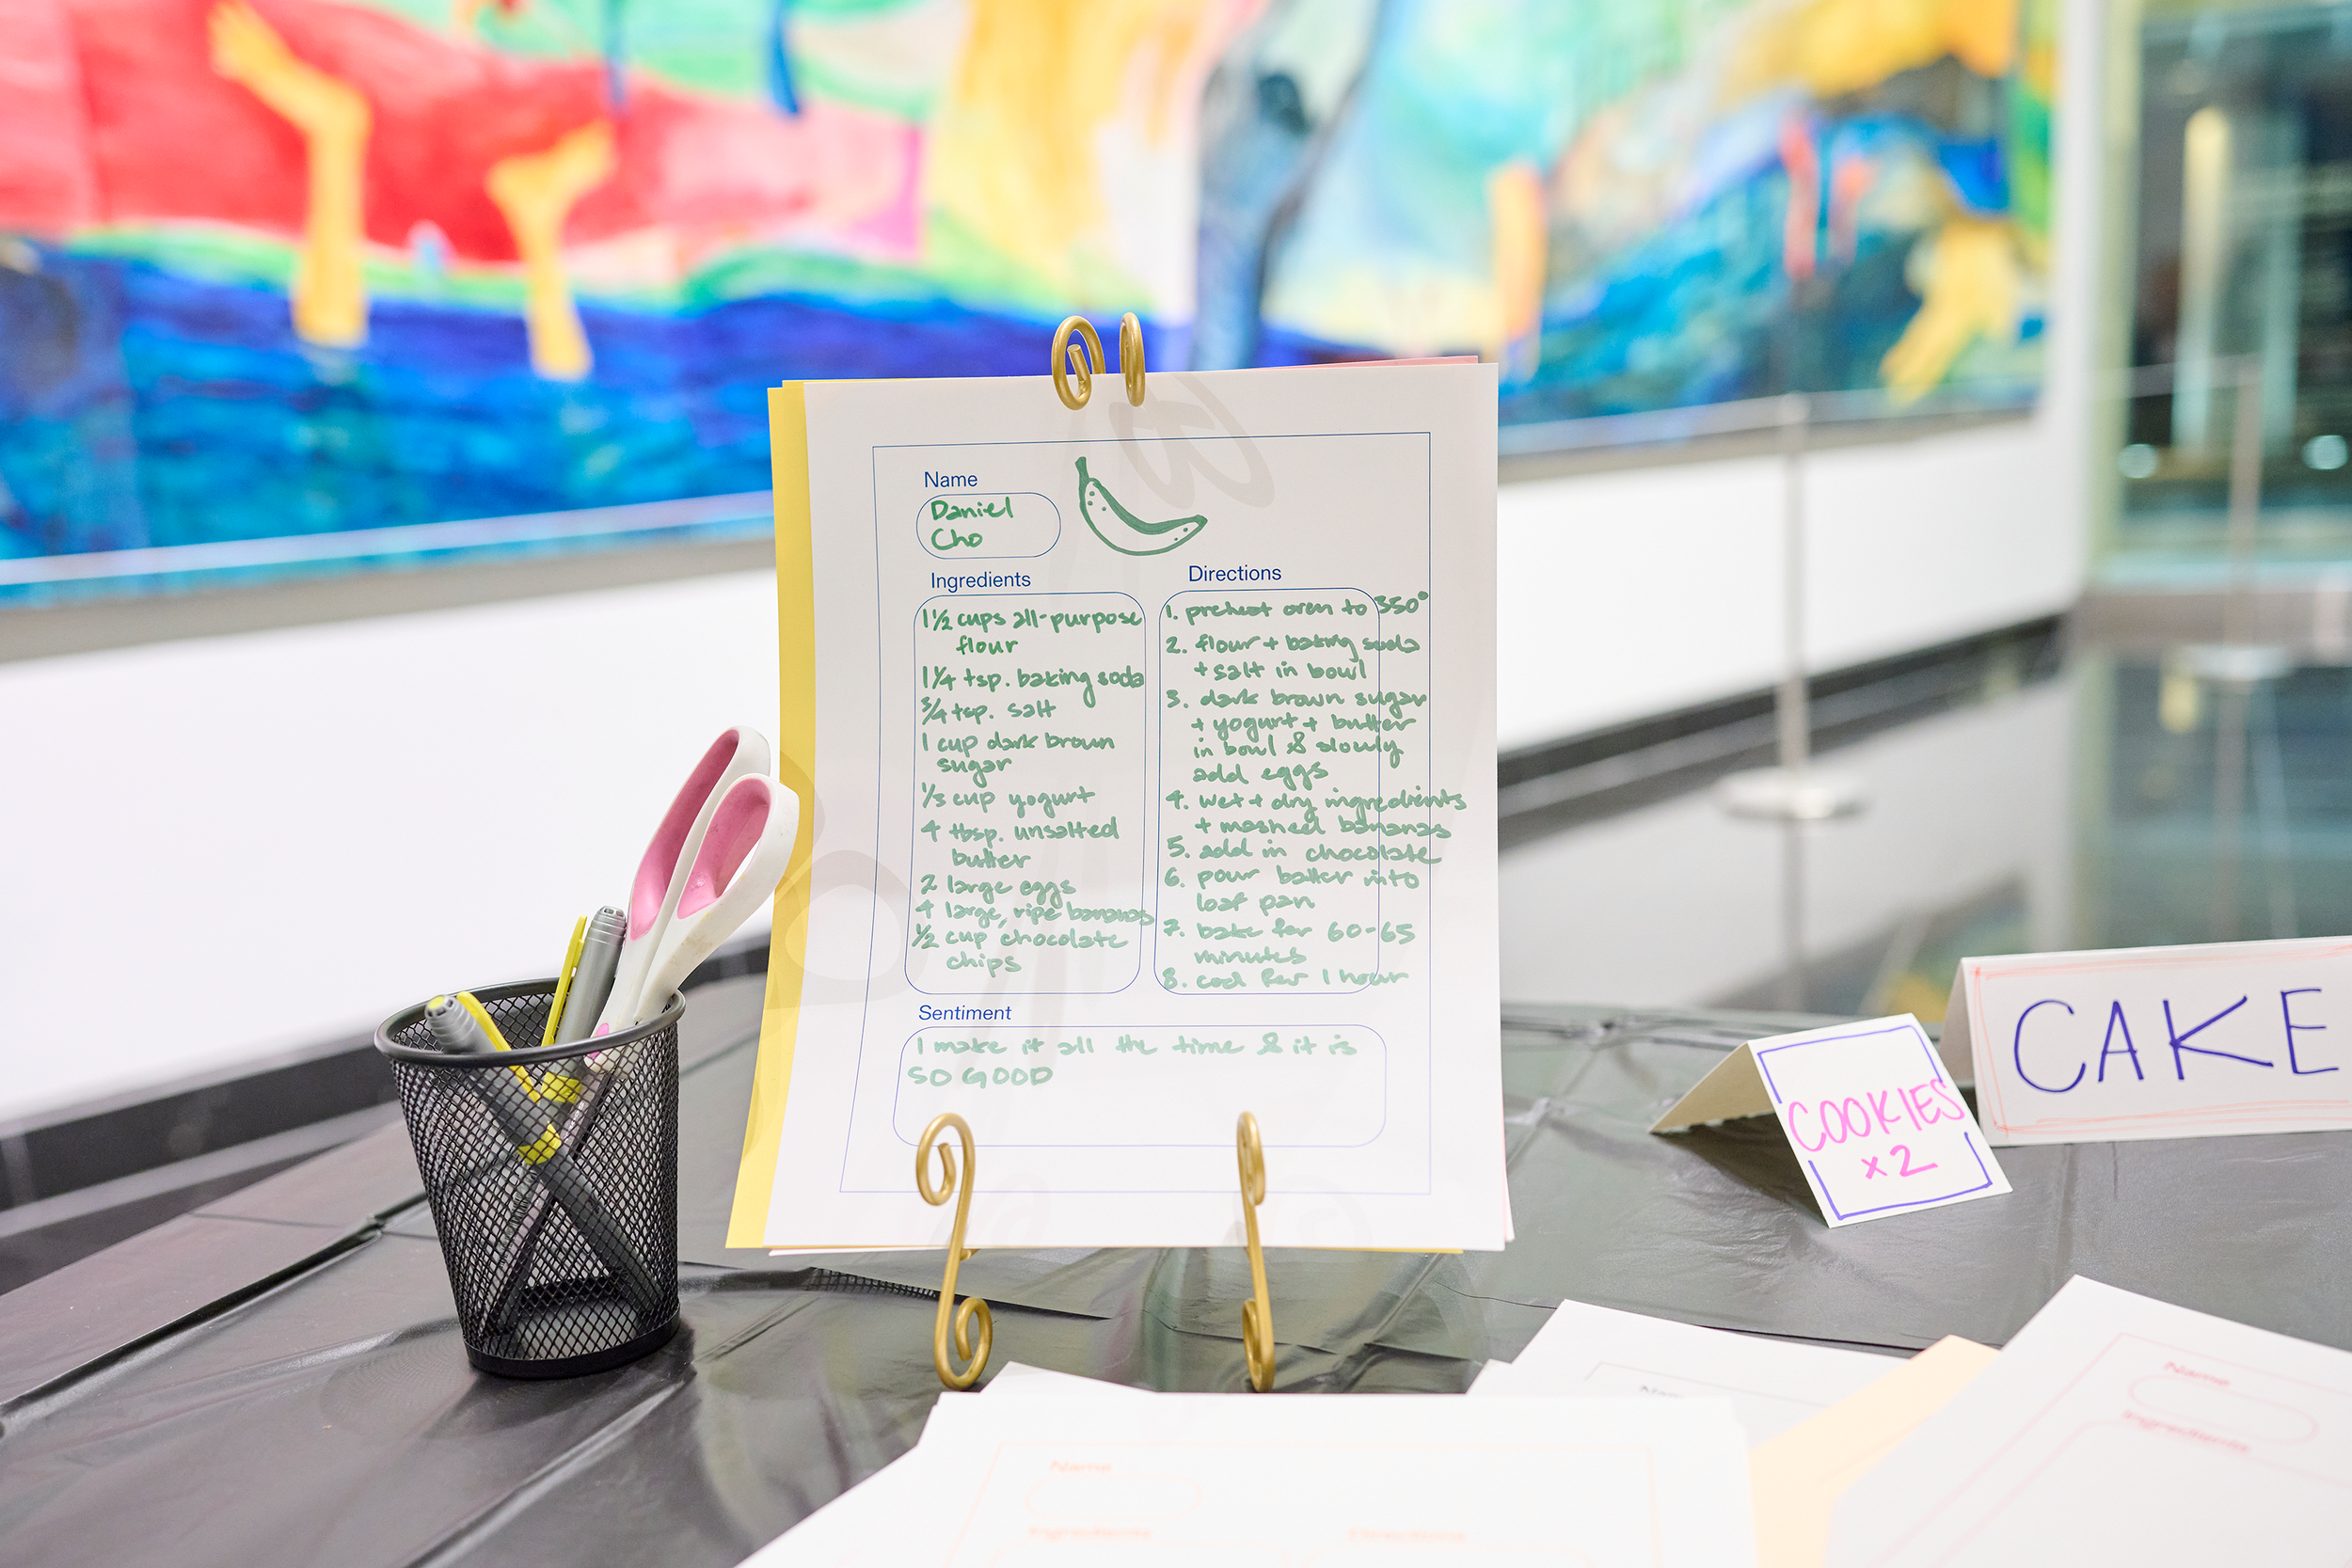 Name
Daniel
Cho
Ingredients
1 1/2 cups all-purpose
flour
1 1/4 tsp. baking soda
3/4 tsp. salt
1 cup dark brown
sugar
1/3 cup yogurt
4 tbsp. unsalted
butter
2 large eggs
4 large, ripe bananas
1/2 cup chocolate
chips
Directions
1. preheat oven to 350°
2. flour + baking soda
+ salt in bowl
3. dark brown sugar
+ yogurt + butter
in bowl & slowly
add eggs
4. wet + dry ingredients
+ mashed bananas
5. add in chocolate
6. pour batter into
loaf pan
7. bake for 60-65
minutes
8. cool for 1 hour
Sentiment
I make it all the time & it is
SO GOOD
COOKIES
x2
CAKE
Name
Ingredients
Directions
Name
Ingredients